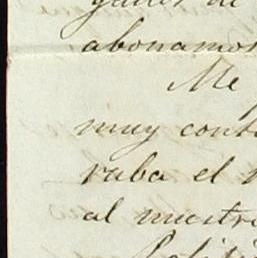 abonamos
Me
muy cont
raba el
al nuestro